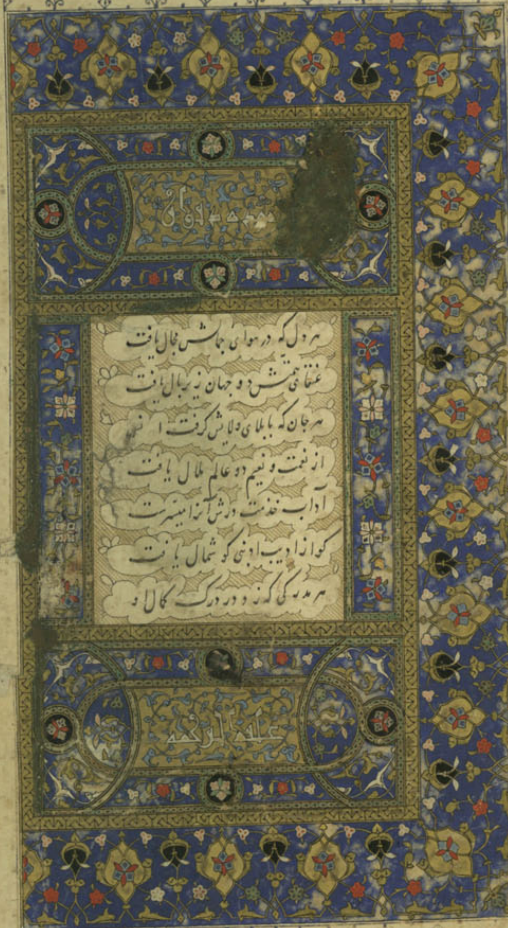 هر دل که در هوای جمالش مجال یافت
عنقای همتش دو جهان زیر بال یافت
هر جان که با بلای ولایش گرفت
از نعمت و نعیم دو عالم ملال یافت
آداب خدمت درش آنرا میسرست
کو از ادیب ادبنی گوشمال یافت
هر مدرکی که زد در درک کمال او
علیه الرحمه